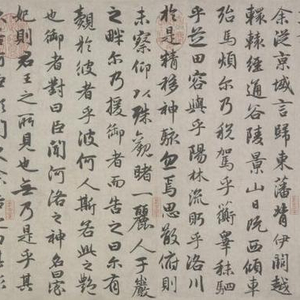 余從京城言歸東藩背伊闕越
轘轅經通谷陵景山日既西傾車
殆馬煩尔乃稅駕乎蘅皋秣駟
乎芝田容與乎陽林流眄乎洛川
於是精移神駭忽焉思散俯則
未察仰以殊觀睹一麗人于巖
之畔尔乃援御者而告之曰尔有
覿於彼者乎彼何人斯若此之艷
也御者對曰臣聞河洛之神名曰宓
妃則君王之所見也無乃是乎其